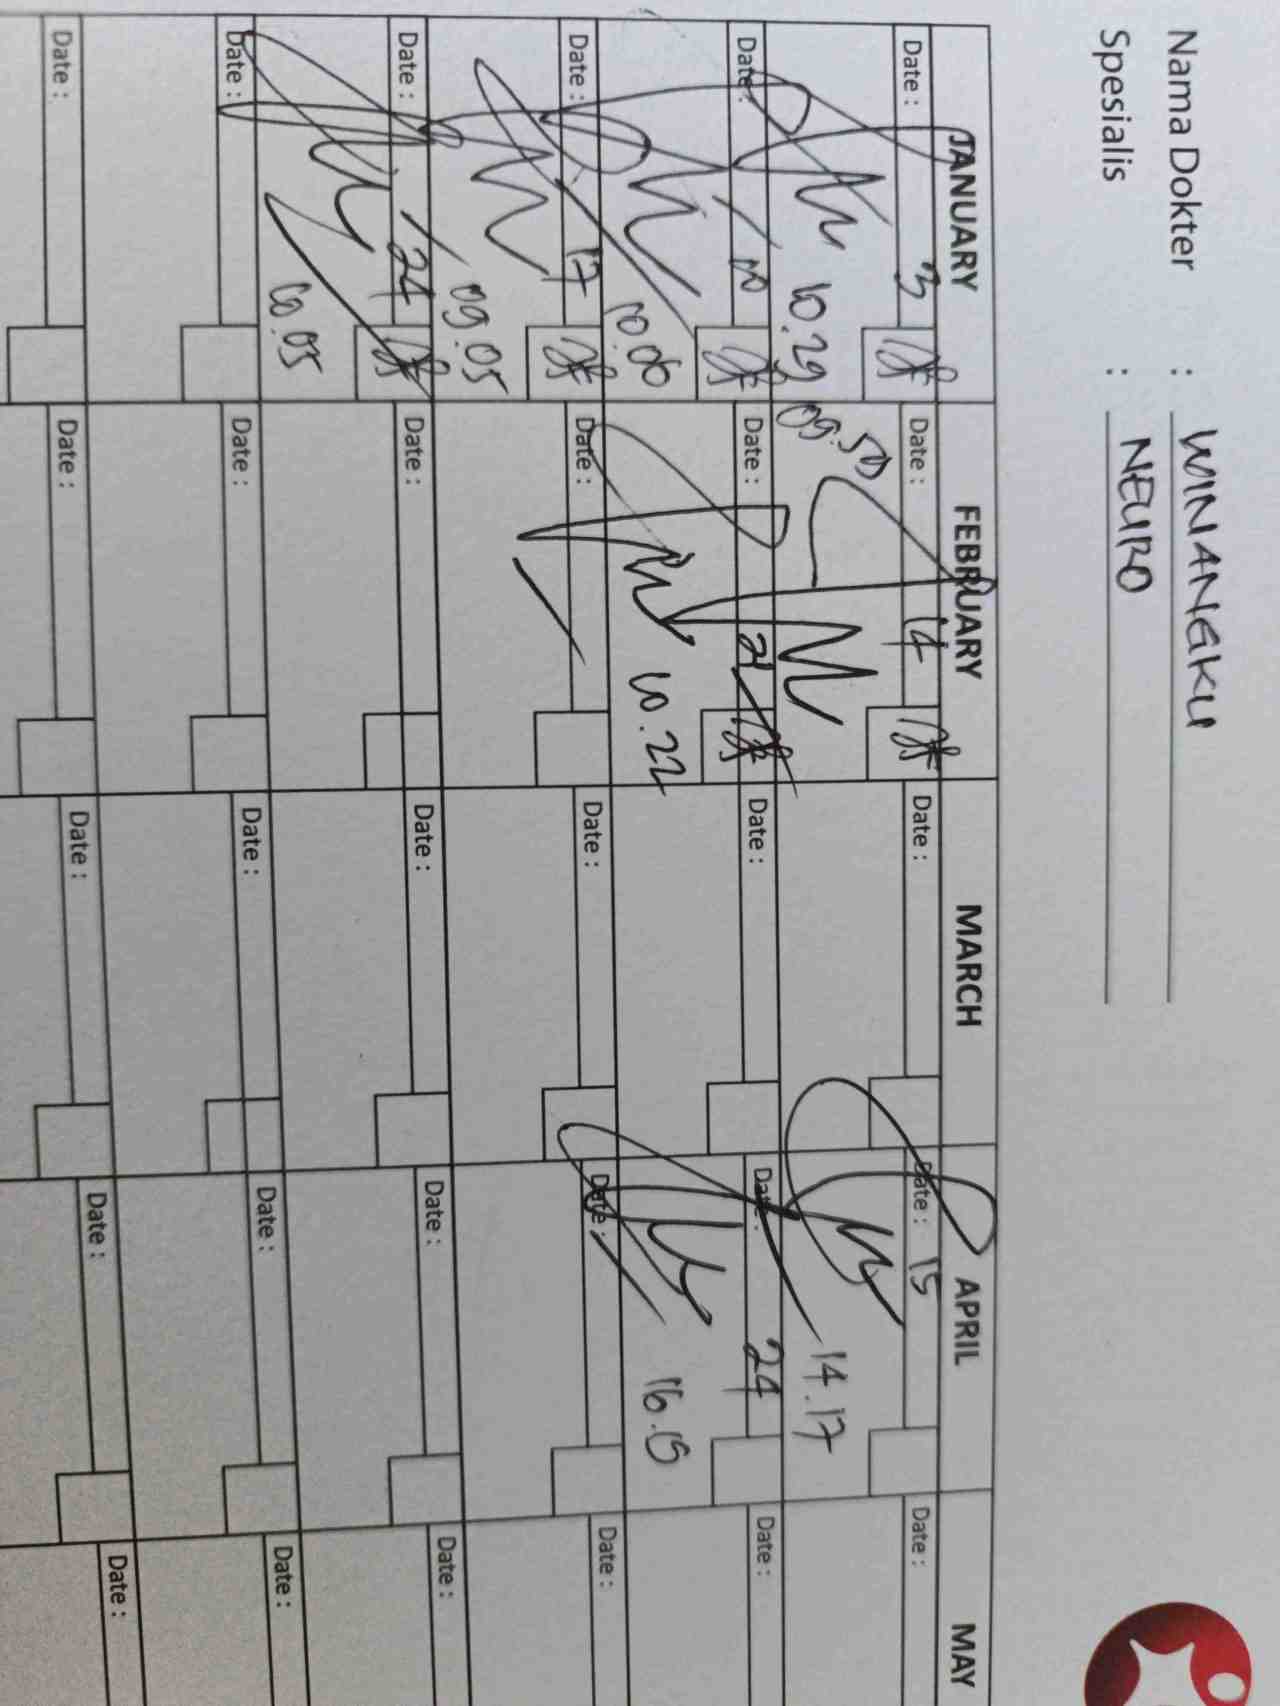 Nama Dokter : WINANGKU
Spesialis : NEURO
JANUARY FEBRUARY MARCH APRIL MAY
Date : 3 Date : 14 Date : Date : 15 Date :
10.29 09.50 14.17
Date : 10 Date : 21 Date : Date : 24 Date :
10.06 10.22 16.15
Date : 17 Date : Date : Date : Date :
09.05
Date : 24 Date : Date : Date : Date :
10.05
Date : Date : Date : Date : Date :
Date : Date : Date : Date : Date :